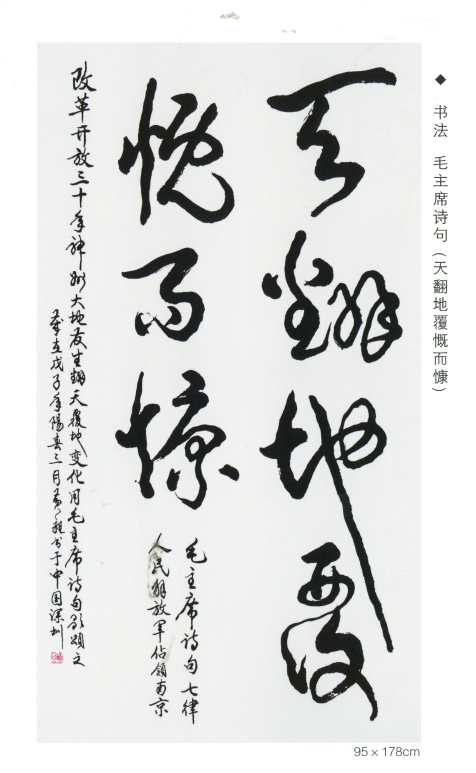 ◆ 书法 毛主席诗句(天翻地覆慨而慷)
天翻地覆
慨而慷
毛主席诗句七律
人民解放军佔领南京
改革开放三十年神州大地发生翻天覆地变化用毛主席诗句歌颂之
岁在戊子年陽春三月书于中国深圳
95 × 178cm